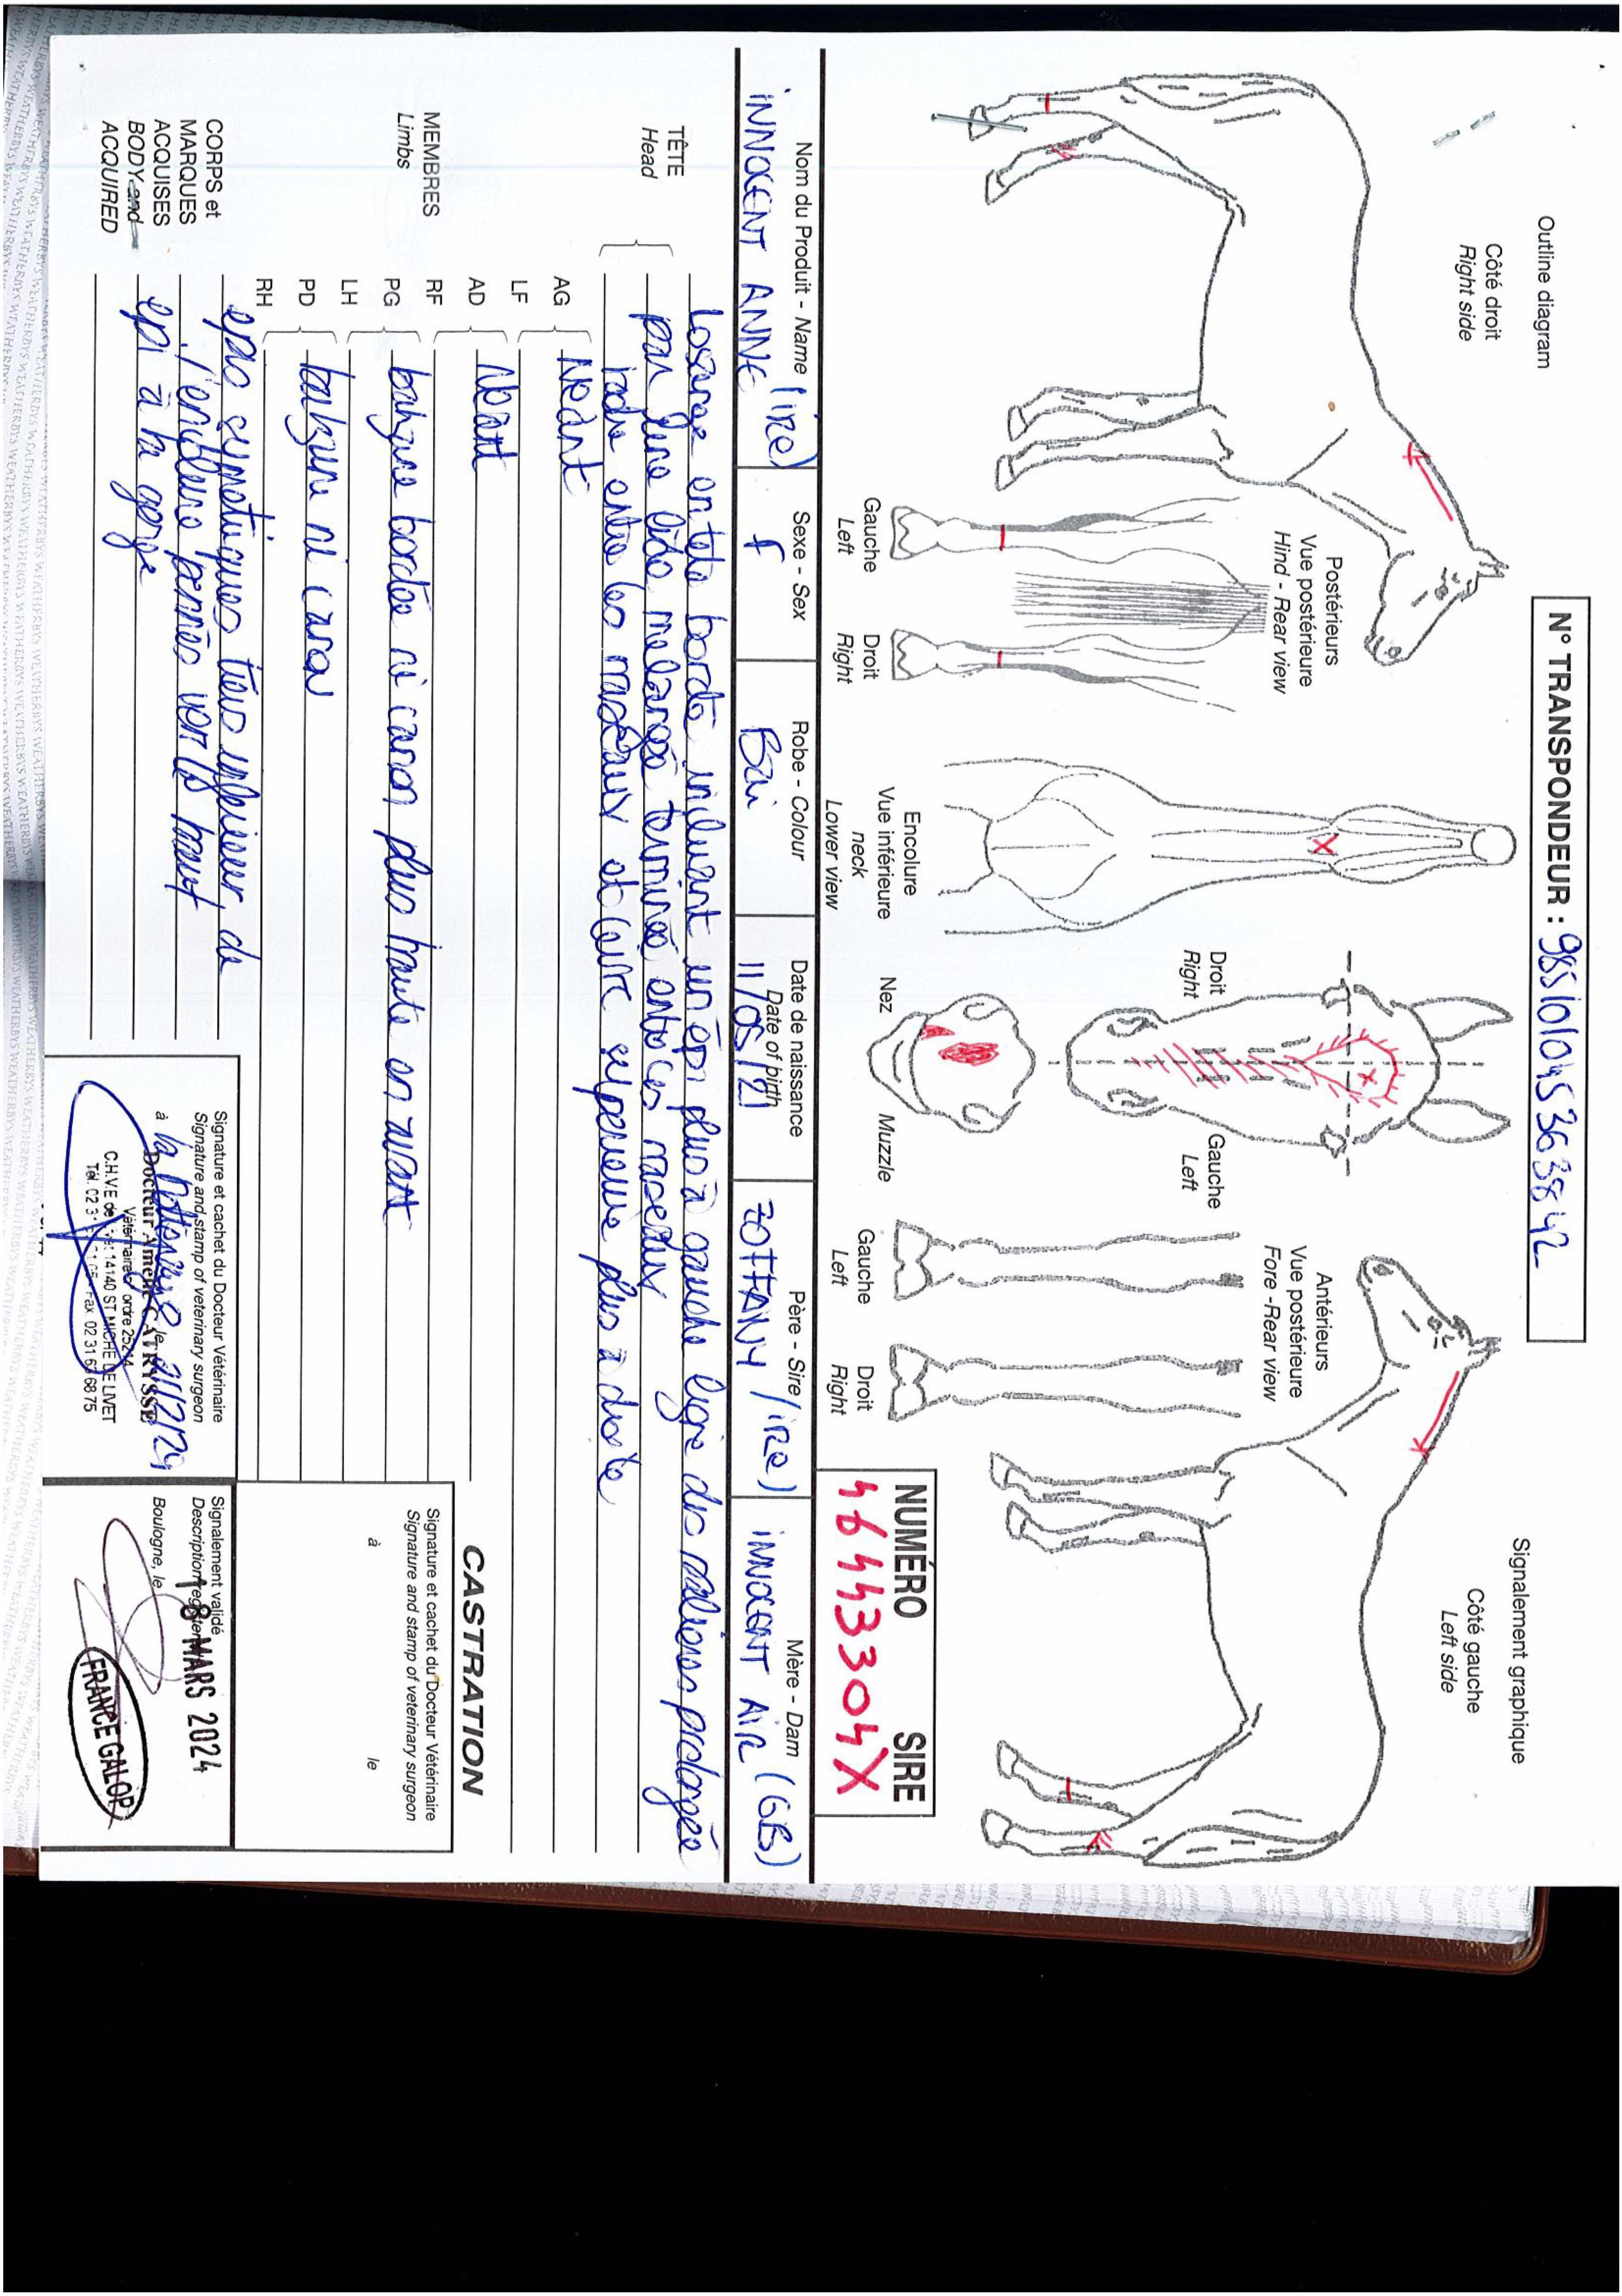 N° TRANSPONDEUR : 985101045363842
Outline diagram
Signalement graphique
Côté droit
Right side
Côté gauche
Left side
Postérieurs
Vue postérieure
Hind - Rear view
Gauche
Left
Droit
Right
Encolure
Vue inférieure
neck
Lower view
Droit
Right
Gauche
Left
Nez
Muzzle
Antérieurs
Vue postérieure
Fore -Rear view
Gauche
Left
Droit
Right
NUMÉRO SIRE
46443304X
Nom du Produit - Name
INNOCENT ANNE (IRE)
Sexe - Sex
f
Robe - Colour
Bai
Date de naissance
Date of birth
11/05/21
Père - Sire
ZOFFANY (IRE)
Mère - Dam
INNOCENT AIR (GB)
TÊTE
Head
Losange en tete bordé incluant un épi plus à gauche ligne de prolongée
par une liste mélangée terminée entre les naseaux
ladre entre les naseaux et lèvre supérieure plus à droite
MEMBRES
Limbs
AG
LF
Néant
AD
RF
Néant
PG
LH
balzane bordée mi canon plus haute en avant
PD
RH
balzane mi canon
CORPS et
MARQUES
ACQUISES
BODY and
ACQUIRED
epis symetriques tiers de
l'encolure pennés vers le haut
epi à la gorge
CASTRATION
Signature et cachet du Docteur Vétérinaire
Signature and stamp of veterinary surgeon
à le
Signature et cachet du Docteur Vétérinaire
Signature and stamp of veterinary surgeon
à le
Docteur Amélie CATRYSSE
Vétérinaire
C.H.V.E de Livet 14140 ST MICHEL DE LIVET
Signalement validé
Description registered
Boulogne, le
18 MARS 2024
FRANCE GALOP
WEATHERBYS